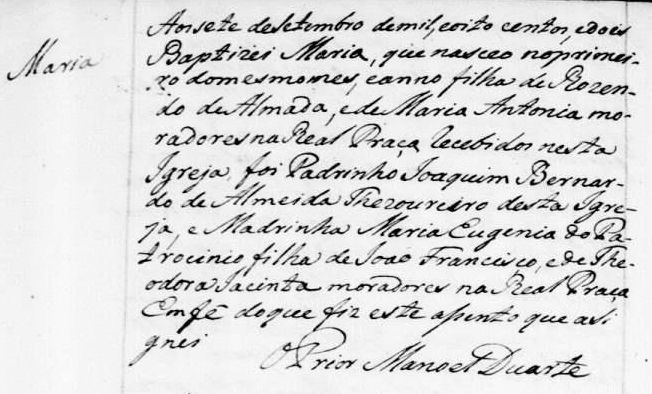 Maria
Aos sete de Setembro de mil, e oito centos, e dois
Baptizei Maria, que nasceo no primei-
ro do mesmo mes, e anno filha de Rozen-
do de Almada, e de Maria Antonia mo-
radores na Real Praça recebidos nesta
Igreja, foi Padrinho Joaquim Bernar-
do de Almeida Thezoureiro desta Igre-
ja, e Madrinha Maria Eugenia do Pa-
trocinio filha de Joaõ Francisco, e de The-
odora Jacinta moradores na Real Praça
Em fé do que fiz este asento que asi
gnei
O Prior Manoel Duarte